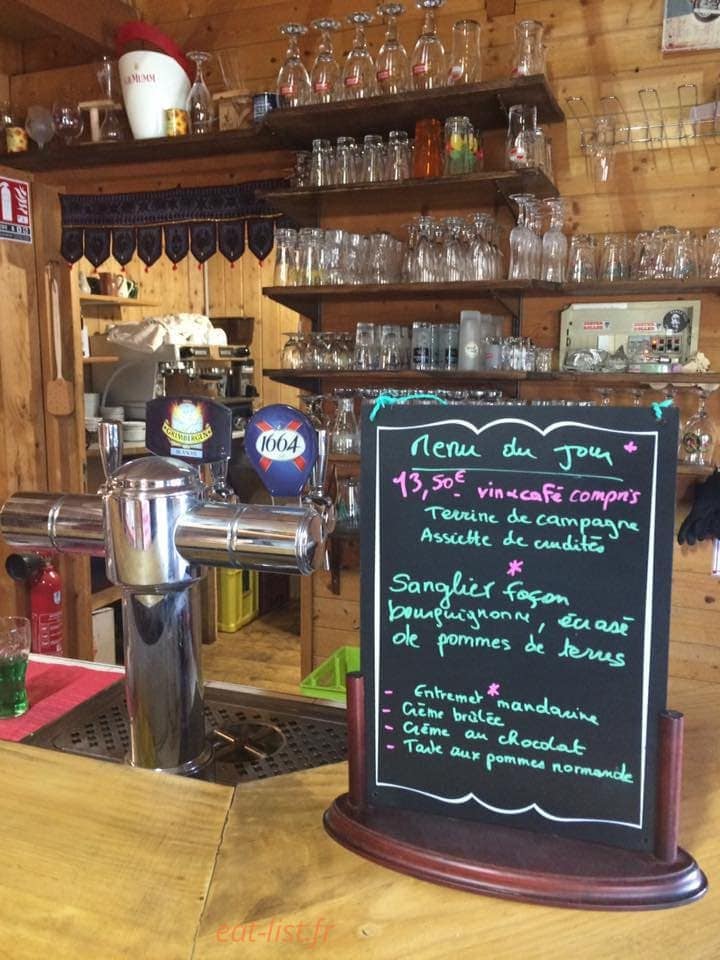 MUMM
GRIMBERGEN
BLANCHE
1664
Menu du jour
13,50€ vin & café compris
Terrine de campagne
Assiette de crudités
*
Sanglier façon
bourguignonne, écrasé
de pommes de terres
*
- Entremet mandarine
- Crème brûlée
- Crème au chocolat
- Tarte aux pommes normande
eat-list.fr